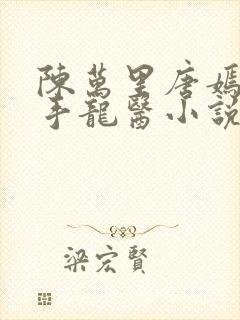 陳萬里唐嫣
手龍醫小說
梁宏賢